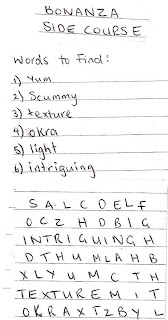 BONANZA
SIDE COURSE
Words to Find:
1) Yum
2) Scummy
3) texture
4) okra
5) light
6) intriguing
S A L C D E L F
O C Z H D B I G
I N T R I G U I N G H
D T H U M L A H B
X L Y U M C T H
T E X T U R E M I T
O K R A X T Z B Y L